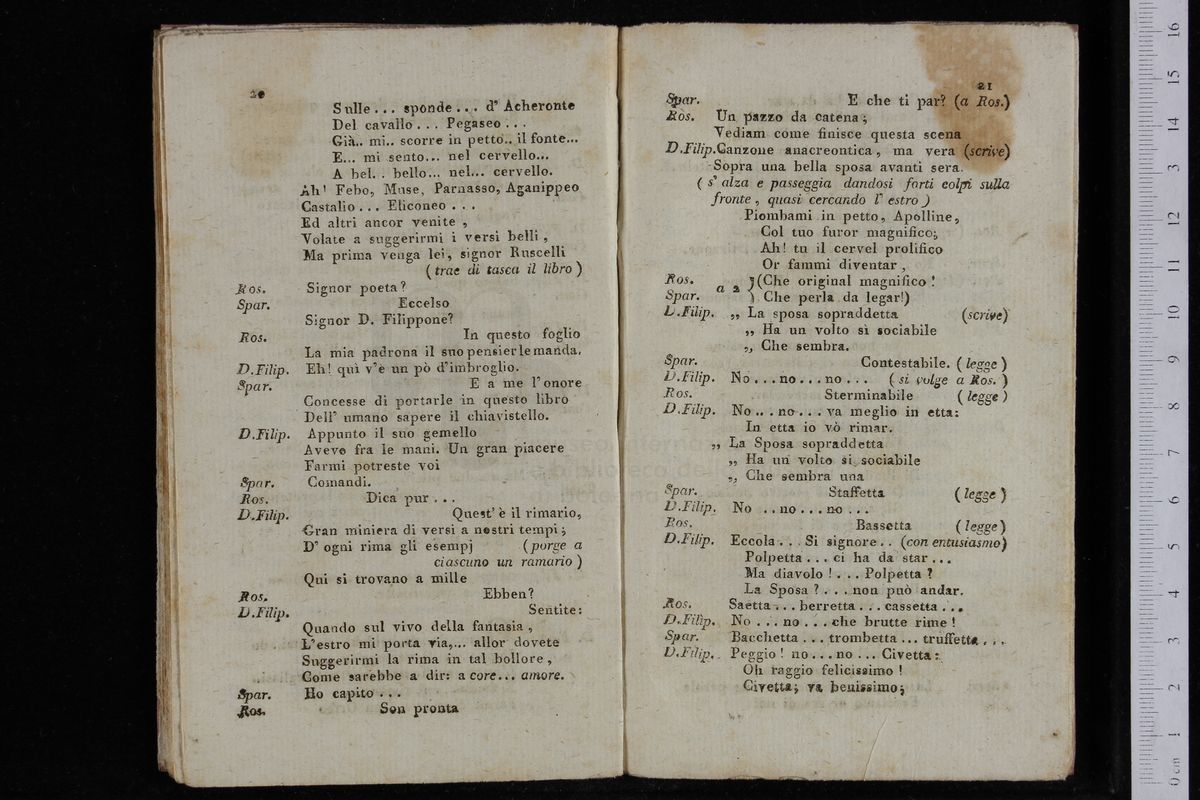 20
Sulle... sponde... d' Acheronte
Del cavallo... Pegaseo...
Già.. mi.. scorre in petto.. il fonte...
E... mi sento... nel cervello...
A bel.. bello... nel... cervello.
Ah! Febo, Muse, Parnasso, Aganippeo
Castalio... Eliconeo...
Ed altri ancor venite,
Volate a suggerirmi i versi belli,
Ma prima venga lei, signor Ruscelli
(trae di tasca il libro)
Ros. Signor poeta?
Spar. Eccelso
Signor D. Filippone?
Ros. In questo foglio
La mia padrona il suo pensier le manda.
D.Filip. Eh! quì v'è un pò d'imbroglio.
Spar. E a me l'onore
Concesse di portarle in questo libro
Dell' umano sapere il chiavistello.
D.Filip. Appunto il suo gemello
Avevo fra le mani. Un gran piacere
Farmi potreste voi
Spar. Comandi.
Ros. Dica pur...
D.Filip. Quest' è il rimario,
Gran miniera di versi a nostri tempi;
D' ogni rima gli esempj (porge a
ciascuno un ramario)
Qui si trovano a mille
Ros. Ebben?
D.Filip. Sentite:
Quando sul vivo della fantasia,
L'estro mi porta via,... allor dovete
Suggerirmi la rima in tal bollore,
Come sarebbe a dir: a core... amore.
Spar. Ho capito...
Ros. Son pronta
21
Spar. E che ti par? (a Ros.)
Ros. Un pazzo da catena;
Vediam come finisce questa scena
D.Filip. Canzone anacreontica, ma vera (scrive)
Sopra una bella sposa avanti sera.
(s' alza e passeggia dandosi forti colpi sulla
fronte, quasi cercando l' estro)
Piombami in petto, Apolline,
Col tuo furor magnifico;
Ah! tu il cervel prolifico
Or fammi diventar,
Ros. a 2 )(Che original magnifico!
Spar. ) Che perla da legar!)
D.Filip. ,, La sposa sopraddetta (scrive)
,, Ha un volto sì sociabile
,, Che sembra.
Spar. Contestabile. (legge)
D.Filip. No...no...no... (si volge a Ros.)
Ros. Sterminabile (legge)
D.Filip. No...no...va meglio in etta:
In etta io vò rimar.
,, La Sposa sopraddetta
,, Ha un volto sì sociabile
,, Che sembra una
Spar. Staffetta (legge)
D.Filip. No ..no...no...
Ros. Bassetta (legge)
D.Filip. Eccola... Si signore.. (con entusiasmo)
Polpetta... ci ha da star...
Ma diavolo!... Polpetta?
La Sposa?... non può andar.
Ros. Saetta... berretta... cassetta...
D.Filip. No... no... che brutte rime!
Spar. Bacchetta... trombetta... truffetta....
D.Filip. Peggio! no...no... Civetta:
Oh raggio felicissimo!
Civetta; va benissimo;
0 cm 1 2 3 4 5 6 7 8 9 10 11 12 13 14 15 16